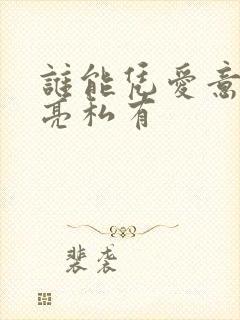 誰能凭愛意
亮私有
裴袭